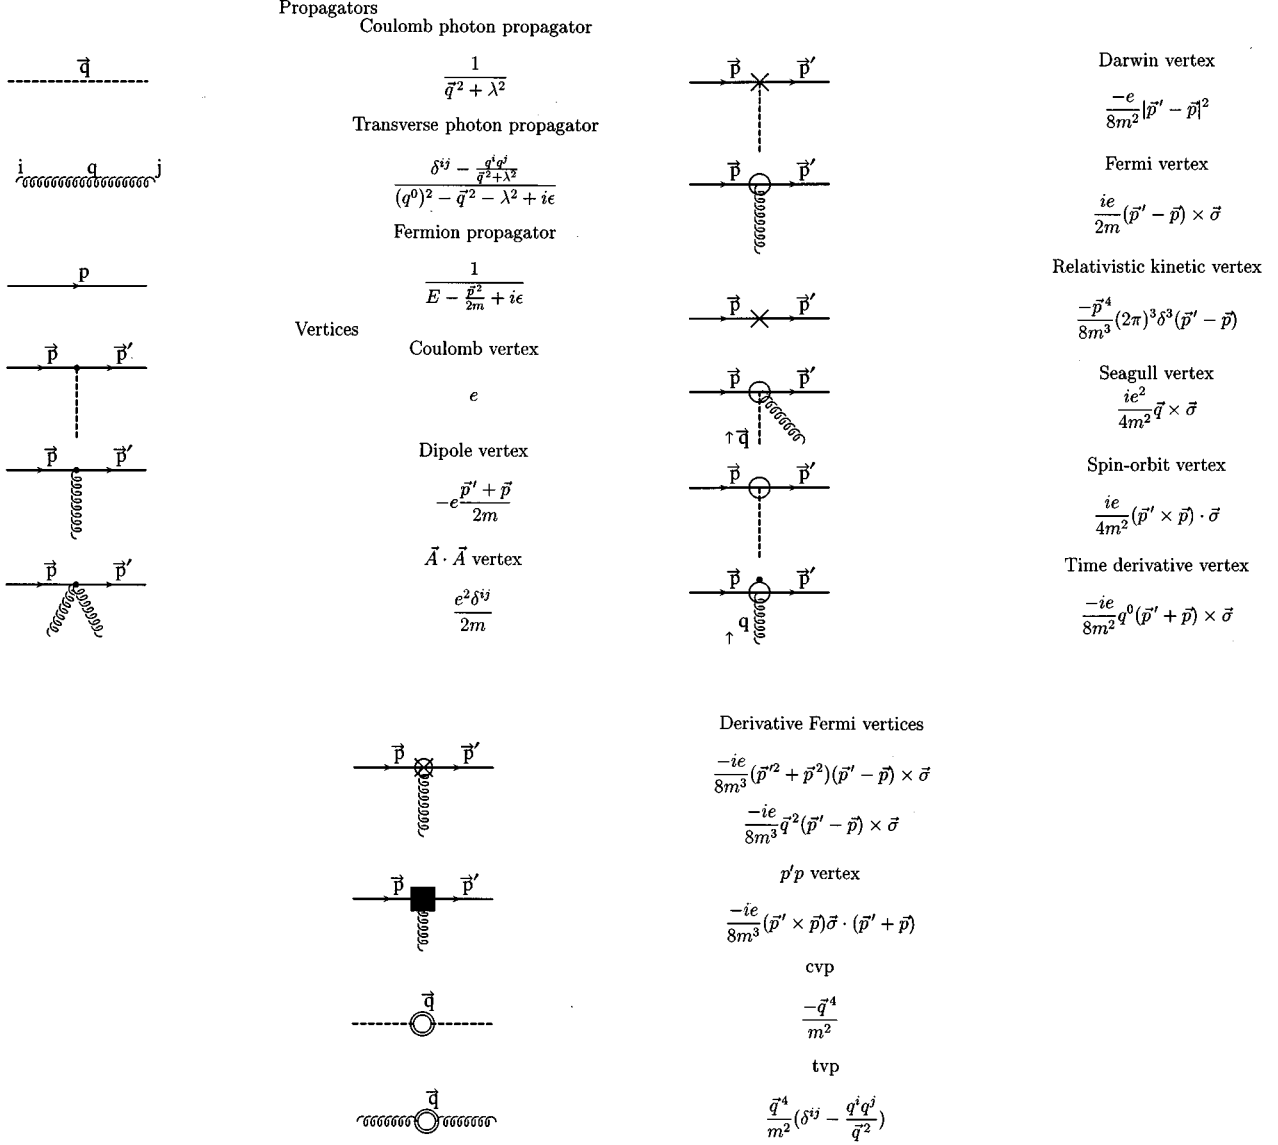 Propagators
Coulomb photon propagator
$\vec{q}$
$\frac{1}{\vec{q}^{\,2} + \lambda^2}$
Transverse photon propagator
i q j
$\frac{\delta^{ij} - \frac{q^i q^j}{\vec{q}^{\,2} + \lambda^2}}{(q^0)^2 - \vec{q}^{\,2} - \lambda^2 + i\epsilon}$
Fermion propagator
p
$\frac{1}{E - \frac{\vec{p}^{\,2}}{2m} + i\epsilon}$
Vertices
Coulomb vertex
$\vec{p}$ $\vec{p}\,'$
$e$
Dipole vertex
$\vec{p}$ $\vec{p}\,'$
$-e\frac{\vec{p}\,' + \vec{p}}{2m}$
$\vec{A} \cdot \vec{A}$ vertex
$\vec{p}$ $\vec{p}\,'$
$\frac{e^2 \delta^{ij}}{2m}$
Darwin vertex
$\vec{p}$ $\vec{p}\,'$
$\frac{-e}{8m^2}|\vec{p}\,' - \vec{p}|^2$
Fermi vertex
$\vec{p}$ $\vec{p}\,'$
$\frac{ie}{2m}(\vec{p}\,' - \vec{p}) \times \vec{\sigma}$
Relativistic kinetic vertex
$\vec{p}$ $\vec{p}\,'$
$\frac{-\vec{p}^{\,4}}{8m^3}(2\pi)^3 \delta^3(\vec{p}\,' - \vec{p})$
Seagull vertex
$\vec{p}$ $\vec{p}\,'$
$\frac{ie^2}{4m^2}\vec{q} \times \vec{\sigma}$
↑ $\vec{q}$
Spin-orbit vertex
$\vec{p}$ $\vec{p}\,'$
$\frac{ie}{4m^2}(\vec{p}\,' \times \vec{p}) \cdot \vec{\sigma}$
Time derivative vertex
$\vec{p}$ $\vec{p}\,'$
$\frac{-ie}{8m^2}q^0(\vec{p}\,' + \vec{p}) \times \vec{\sigma}$
↑ q
Derivative Fermi vertices
$\vec{p}$ $\vec{p}\,'$
$\frac{-ie}{8m^3}(\vec{p}\,'^2 + \vec{p}^{\,2})(\vec{p}\,' - \vec{p}) \times \vec{\sigma}$
$\frac{-ie}{8m^3}\vec{q}^{\,2}(\vec{p}\,' - \vec{p}) \times \vec{\sigma}$
$p'p$ vertex
$\vec{p}$ $\vec{p}\,'$
$\frac{-ie}{8m^3}(\vec{p}\,' \times \vec{p})\vec{\sigma} \cdot (\vec{p}\,' + \vec{p})$
cvp
$\vec{q}$
$\frac{-\vec{q}^{\,4}}{m^2}$
tvp
$\vec{q}$
$\frac{\vec{q}^{\,4}}{m^2}(\delta^{ij} - \frac{q^i q^j}{\vec{q}^{\,2}})$